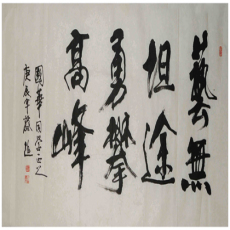 藝無
坦途
勇攀
高峰
國華同学正之
庚辰年